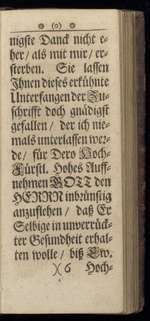 (o)
nigste Danck nicht e-
her/ als mit mir/ er-
sterben. Sie lassen
Ihnen dieses erkühnte
Unterfangen der Zu-
schrifft doch gnädigst
gefallen/ der ich nie-
mals unterlassen wer-
de/ für Dero Hoch-
Fürstl. Hohes Auff-
nehmen GOTT den
HERRN inbrünstig
anzuflehen/ daß Er
Selbige in unverrück-
ter Gesundheit erhal-
ten wolle/ biß Ew.
)( 6 Hoch-